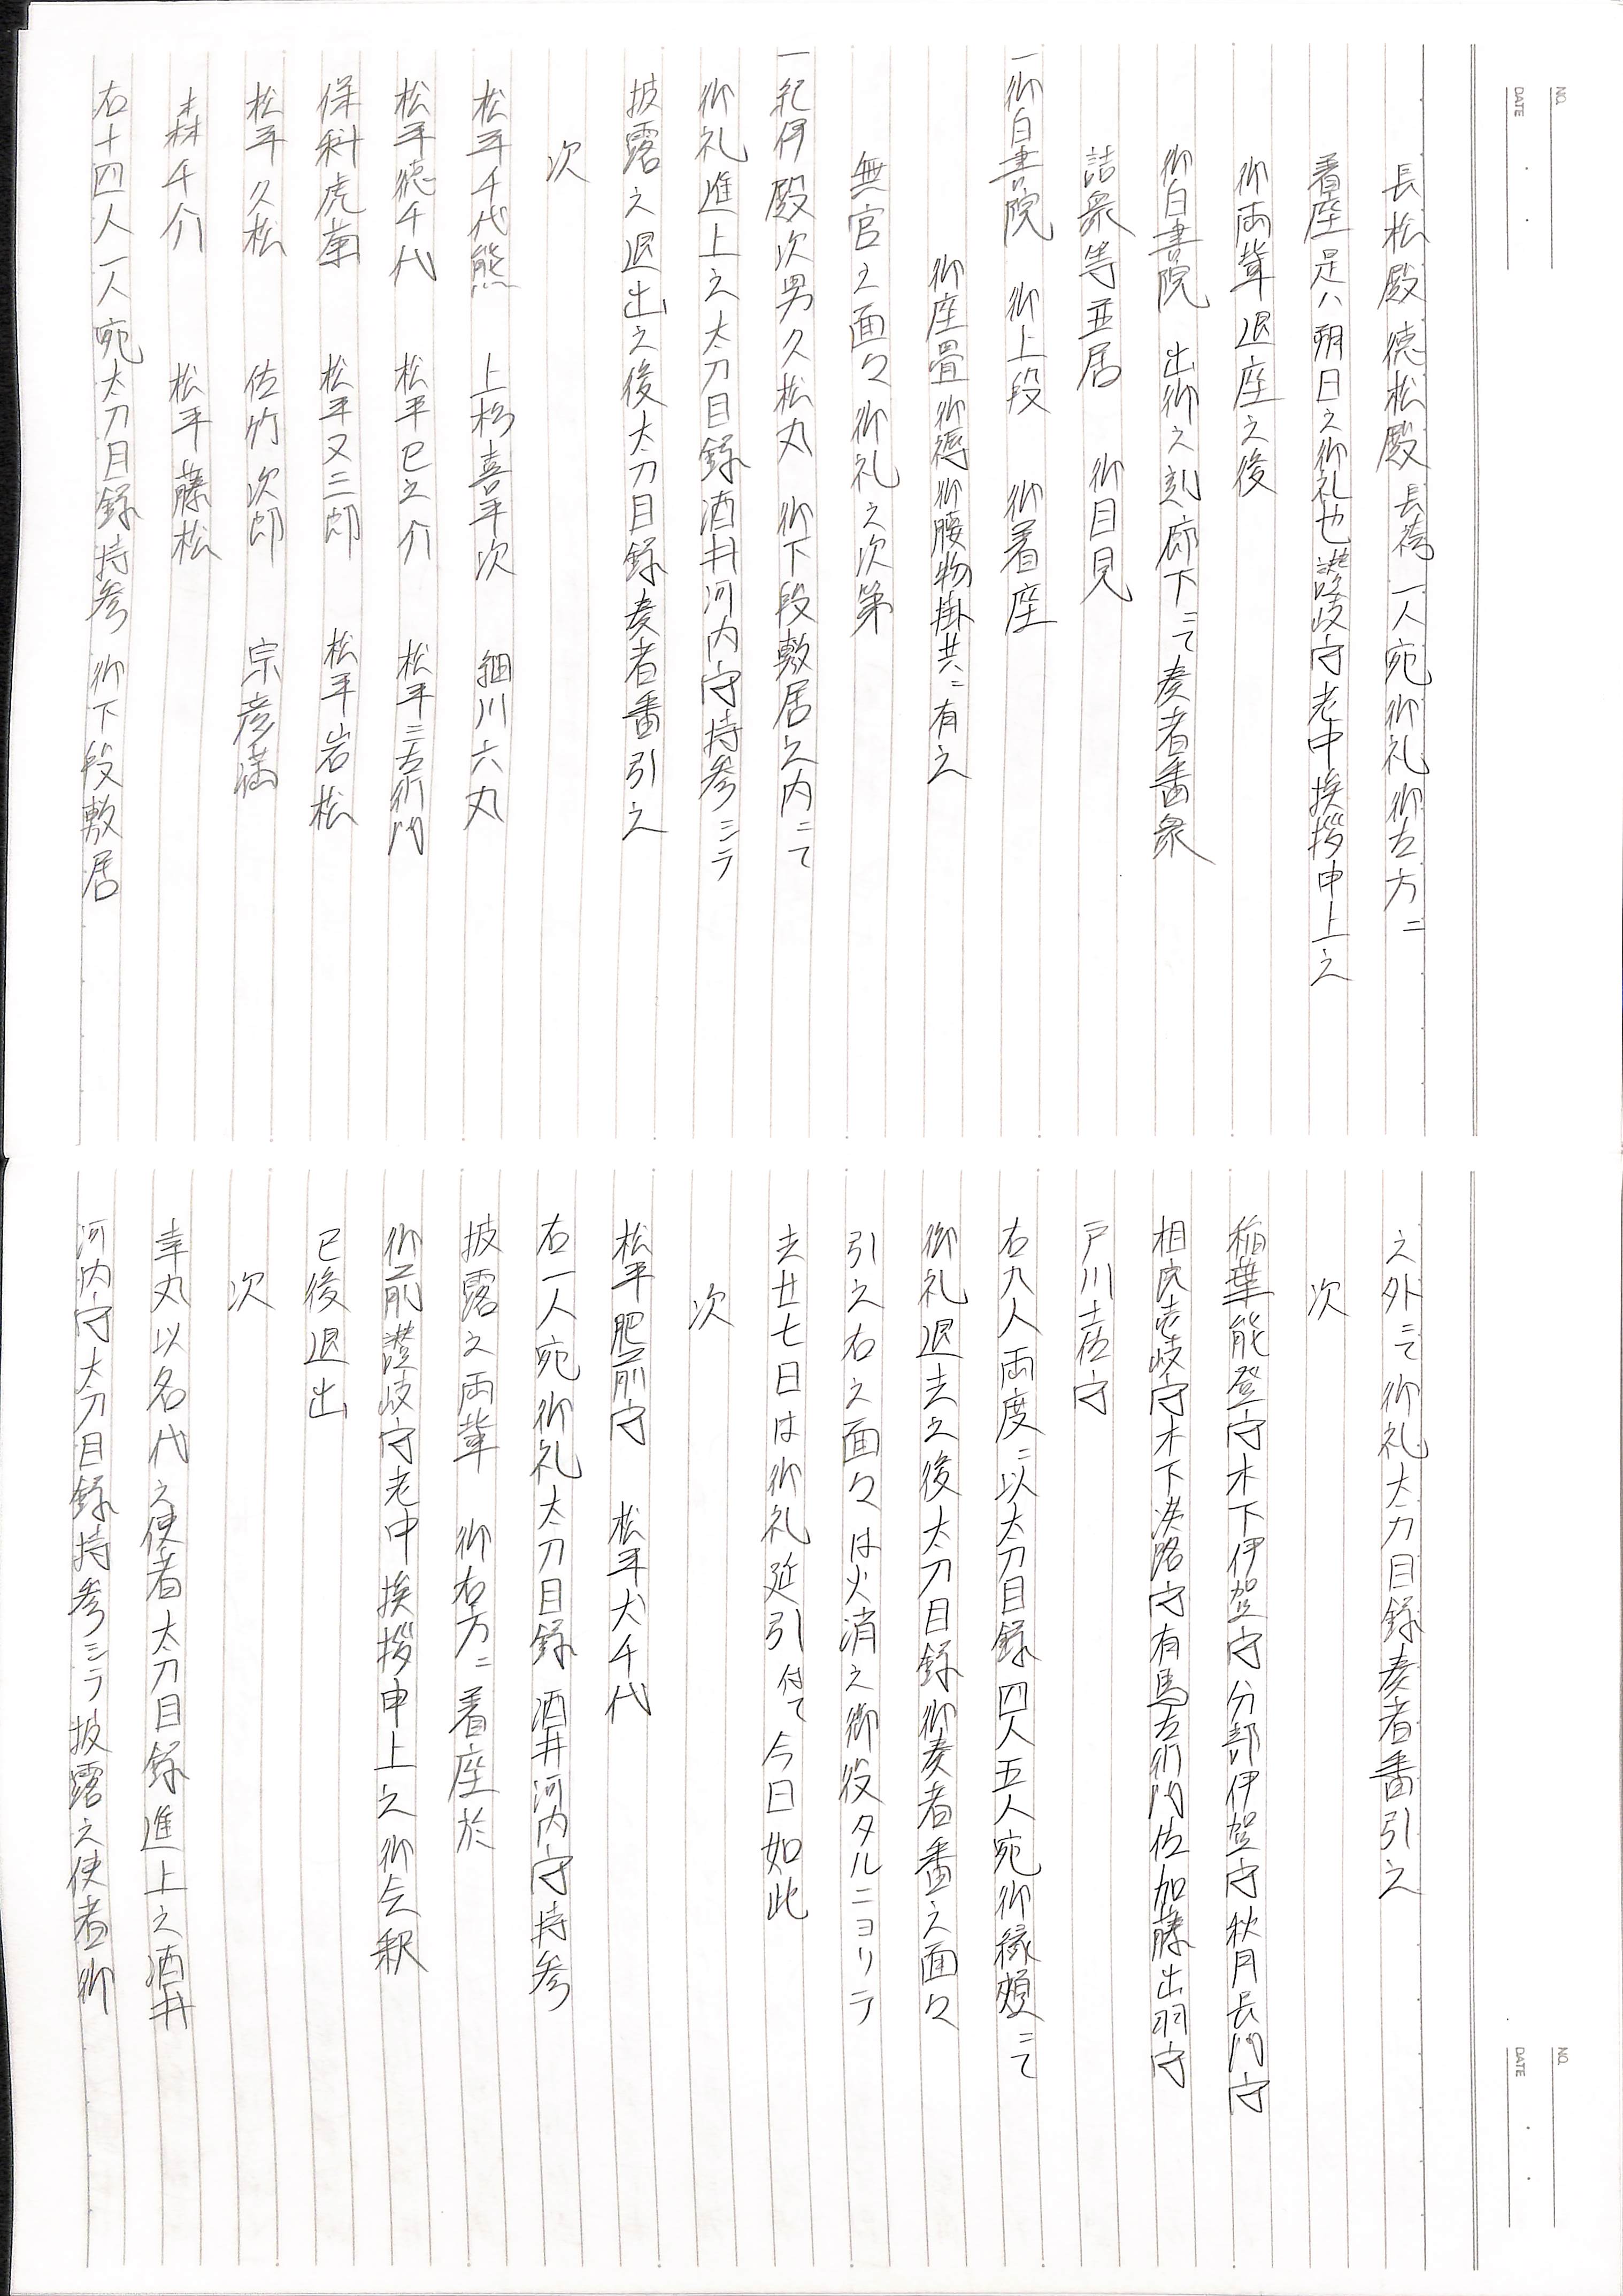 NO.
DATE
長松殿 徳松殿 長袴 一人宛御礼御左方ニ
着座是ハ朔日之御礼也讃岐守老中挨拶申上之
御両輩退座之後
御白書院 出御之刻廊下ニて奏者番衆
詰衆等並居 御目見
一御白書院 御上段 御着座
御座畳御褥御腰物掛共ニ有之
無官之面々御礼之次第
一紀伊殿次男久松丸 御下段敷居之内ニて
御礼進上之太刀目録酒井河内守持参シテ
披露之退出之後太刀目録奏者番引之
次
松平千代熊 上杉喜平次 細川六丸
松平徳千代 松平巳之介 松平三左衛門
保科虎菊 松平又三郎 松平岩松
松平久松 佐竹次郎 宗彦満
森千介 松平藤松
右十四人一人宛太刀目録持参 御下段敷居
NO.
DATE
之外ニて御礼太刀目録奏者番引之
次
稲葉能登守木下伊賀守分部伊賀守秋月長門守
相良壱岐守木下淡路守有馬左衛門佐加藤出羽守
戸川土佐守
右九人両度ニ以太刀目録四人五人宛御縁頬ニて
御礼退去之後太刀目録御奏者番之面々
引之右之面々は火消之御役タルニヨリテ
去廿七日は御礼延引付て今日如此
次
松平肥前守 松平犬千代
右一人宛御礼太刀目録 酒井河内守持参
披露之両輩 御右方ニ着座於
御前讃岐守老中挨拶申上之御会釈
已後退出
次
幸丸以名代之使者太刀目録進上之酒井
河内守太刀目録持参シテ披露之使者御